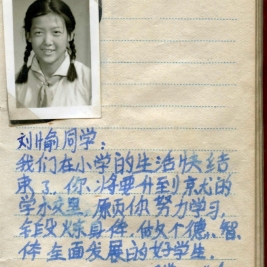 刘愉同学：
我们在小学的生活快结
束了，你将要升到
学校里，愿你努力学习，
锻炼身体，做个德、智、
体全面发展的好学生。